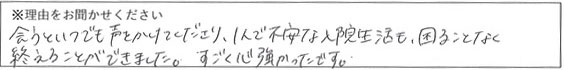 ※理由をお聞かせください
会うといつでも声をかけてくださり、1人で不安な入院生活も、困ることなく
終えることができました。すごく心強かったです。